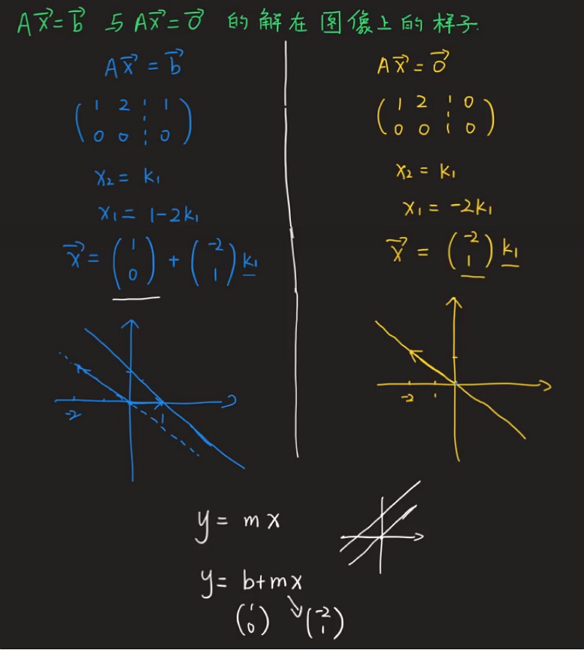 Ax⃗=b⃗ 与 Ax⃗=0⃗ 的解在图像上的样子.
Ax⃗ = b⃗
( 1 2 ¦ 1 )
( 0 0 ¦ 0 )
x₂ = k₁
x₁ = 1-2k₁
x⃗ = (1 0) + (-2 1) k₁
-2
1
Ax⃗ = 0⃗
( 1 2 ¦ 0 )
( 0 0 ¦ 0 )
x₂ = k₁
x₁ = -2k₁
x⃗ = (-2 1) k₁
-2 1
y = mx
y = b+mx
(1 0) (-2 1)